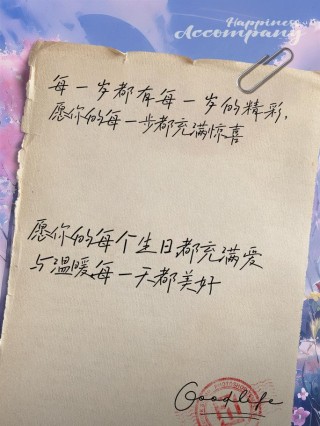 Happiness
Accompany
每一岁都有每一岁的精彩,
愿你的每一步都充满惊喜
愿你的每个生日都充满爱
与温暖,每一天都美好
Goodlife